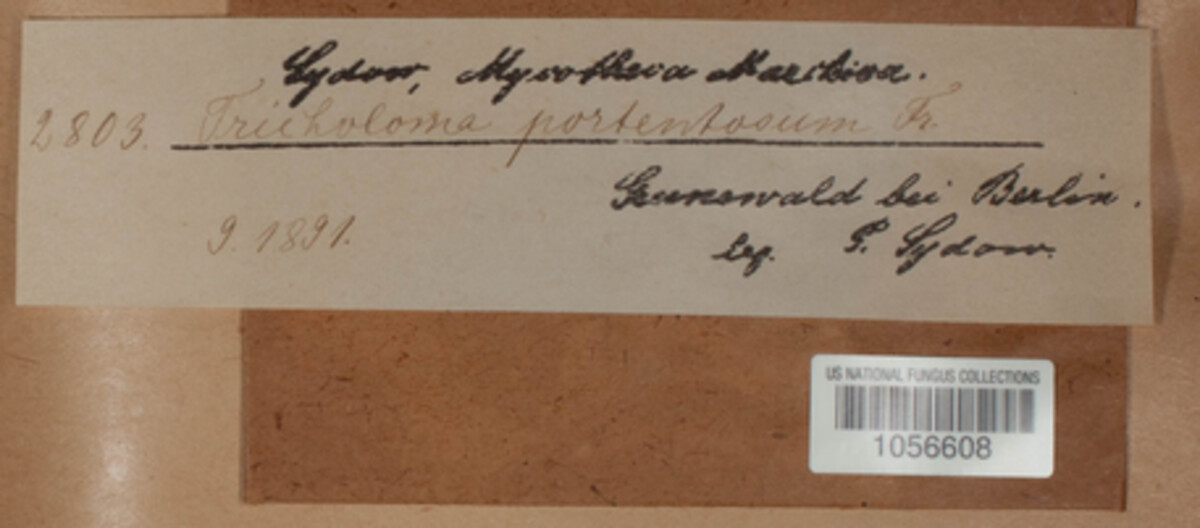 Sydow, Mycotheca Marchica.
2803. Tricholoma portentosum Fr.
Grunewald bei Berlin.
9. 1891.
leg. P. Sydow.
US NATIONAL FUNGUS COLLECTIONS
1056608